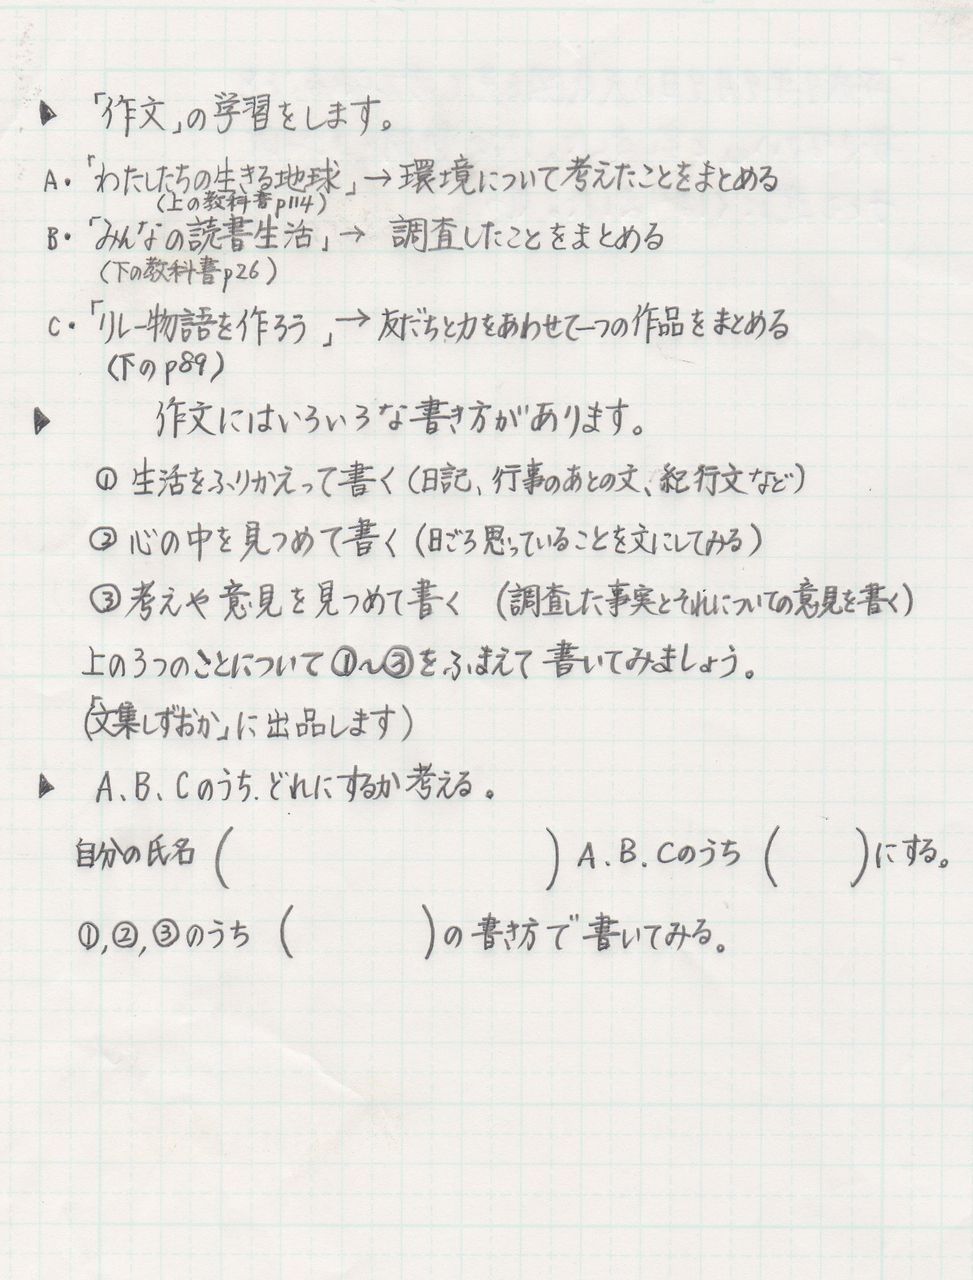 ▶ 「作文」の学習をします。
A・「わたしたちの生きる地球」→環境について考えたことをまとめる
(上の教科書p114)
B・「みんなの読書生活」→ 調査したことをまとめる
(下の教科書p26)
C・「リレー物語を作ろう」→友だちと力をあわせて一つの作品をまとめる
(下のp89)
▶ 作文にはいろいろな書き方があります。
① 生活をふりかえって書く(日記、行事のあとの文、紀行文など)
② 心の中を見つめて書く(日ごろ思っていることを文にしてみる)
③ 考えや意見を見つめて書く (調査した事実とそれについての意見を書く)
上の3つのことについて①〜③をふまえて書いてみましょう。
(「文集しずおか」に出品します)
▶ A、B、Cのうち、どれにするか考える。
自分の氏名( ) A、B、Cのうち( )にする。
①,②,③のうち ( )の書き方で書いてみる。